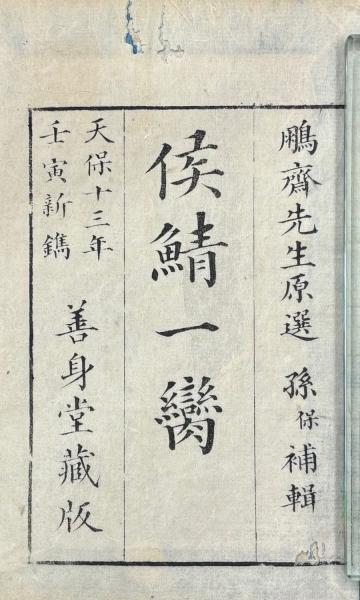 鵬齋先生原選 孫保補輯
侯鯖一臠
天保十三年
壬寅新鐫
善身堂藏版